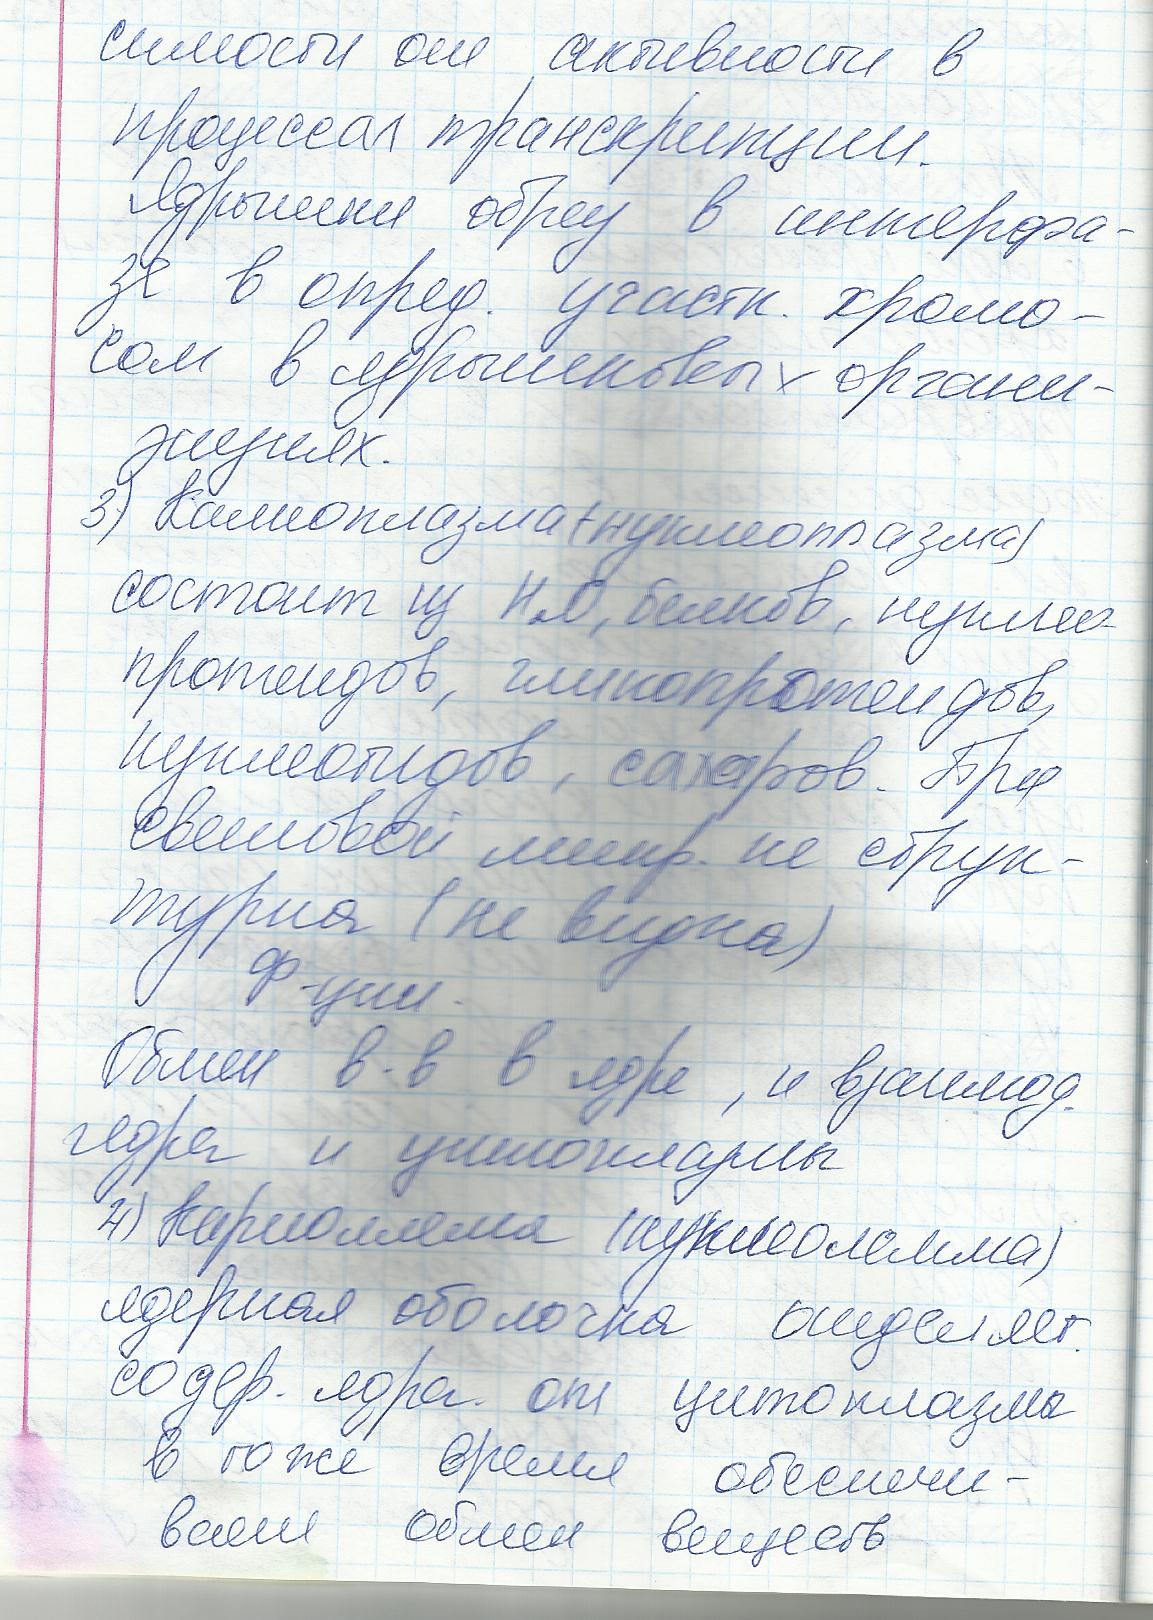 симости от активности в
процессах транскрипции.
Ядрышки образ в интерфа-
зе в опред. участк. хромо-
сом в ядрышковых органи-
зациях.
3) Калиоплазма (нуклеоплазма)
состоит из Н.К, белков, нуклео-
протеидов, гликопротеидов,
нуклеотидов, сахаров. При
световой микр. не струк-
турна (не видна)
Ф-ции.
Обмен в-в в ядре, и взаимод.
ядра и цитоплазмы
4) Кариолемма (нуклеолемма)
ядерная оболочка отделяет.
содер. ядра. от цитоплазмы
в тоже время обеспечи-
вает обмен веществ